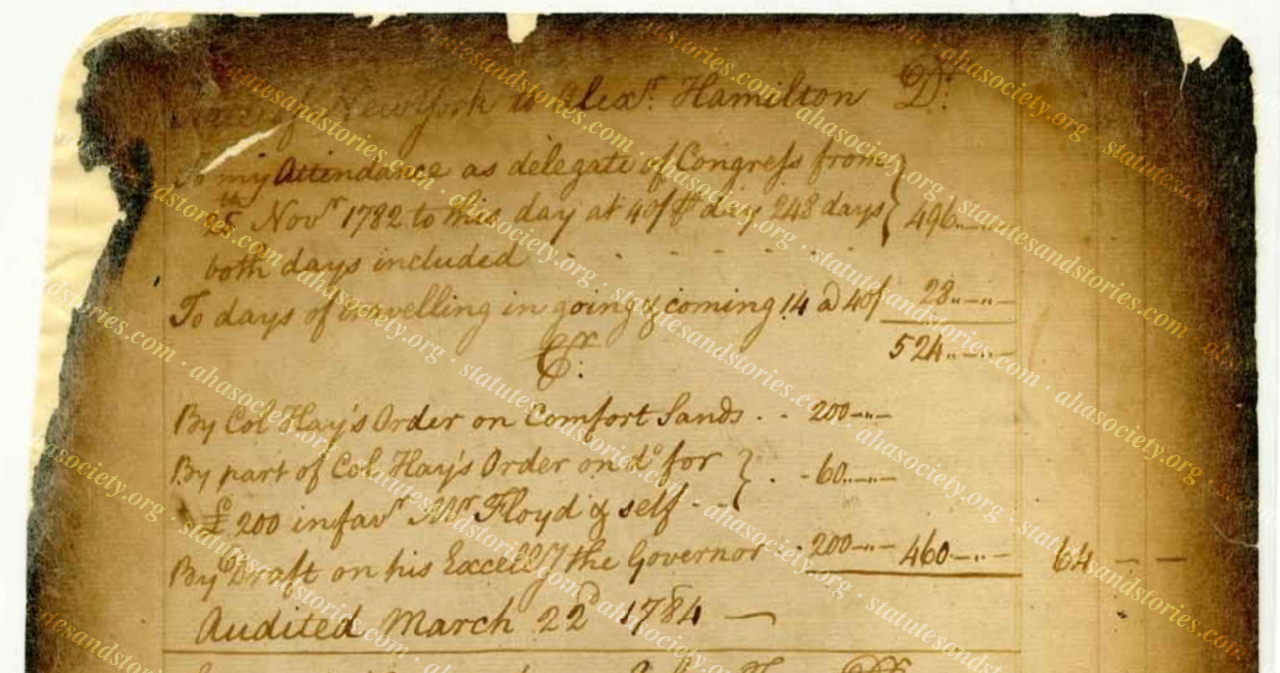 State of New York to Alexr. Hamilton Dr.
To my Attendance as delegate of Congress from
25th Novr 1782 to this day at 40/ ⅌ day 248 days } 496.. — .. —
both days included . . . . . .
To days of travelling in going & coming 14 a 40/ 28.. — .. —
524.. — .. —
Cr.
By Col Hay's Order on Comfort Sands . . 200 — .. —
By part of Col Hay's Order on do for } . . 60.. — .. —
£ 200 in favr Mr Floyd & self - -
By Draft on his Excelly the Governor . . 200 — .. — 460 — .. — 64 — —
Audited March 22d 1784 —
statutesandstories.com · ahasociety.org